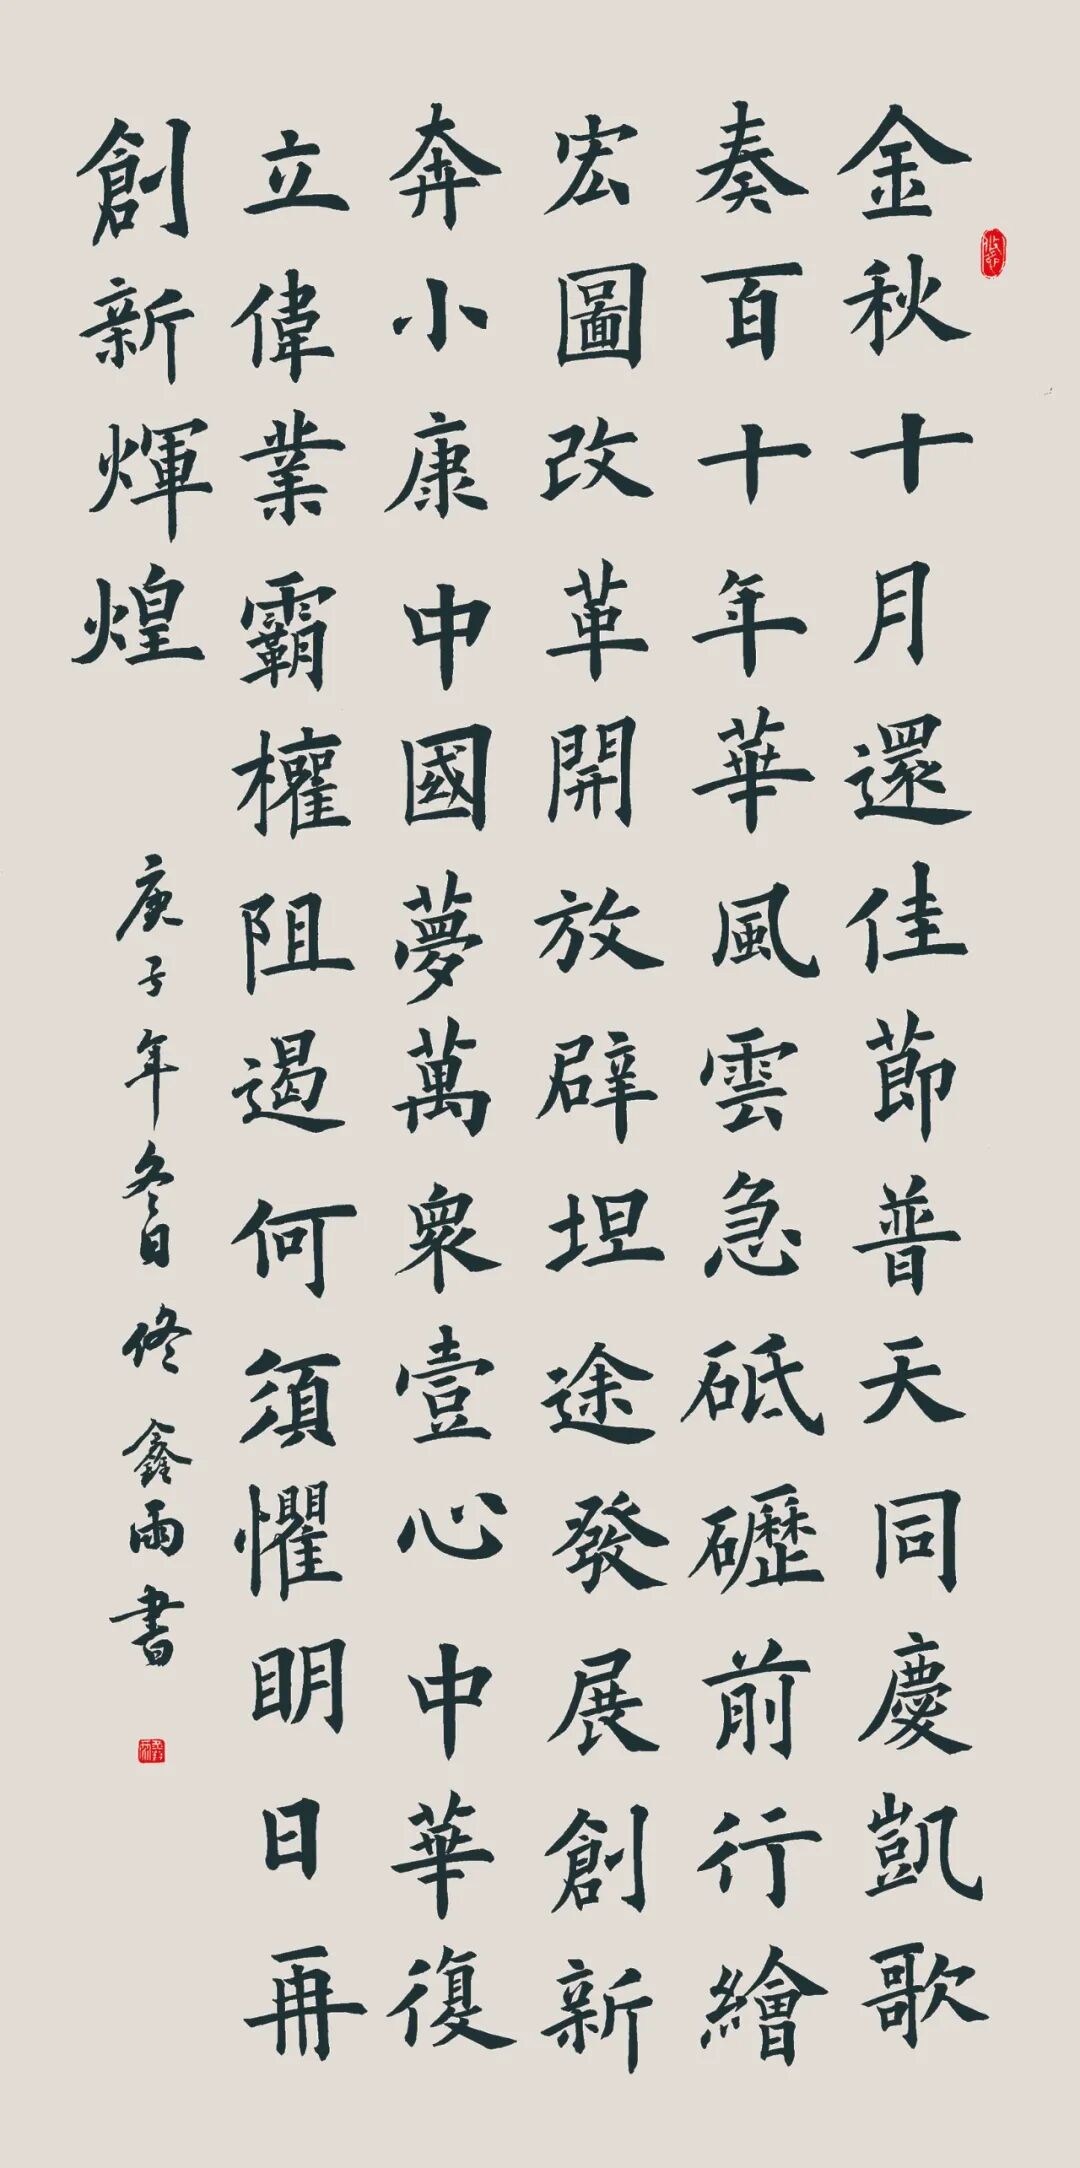 金秋十月還佳節普天同慶凱歌
奏百十年華風雲急砥礰前行繪
宏圖改革開放辟坦途發展創新
奔小康中國夢萬衆壹心中華復
立偉業霸權阻遏何須懼明日再
創新輝煌
庚子年冬日佟鑫雨書